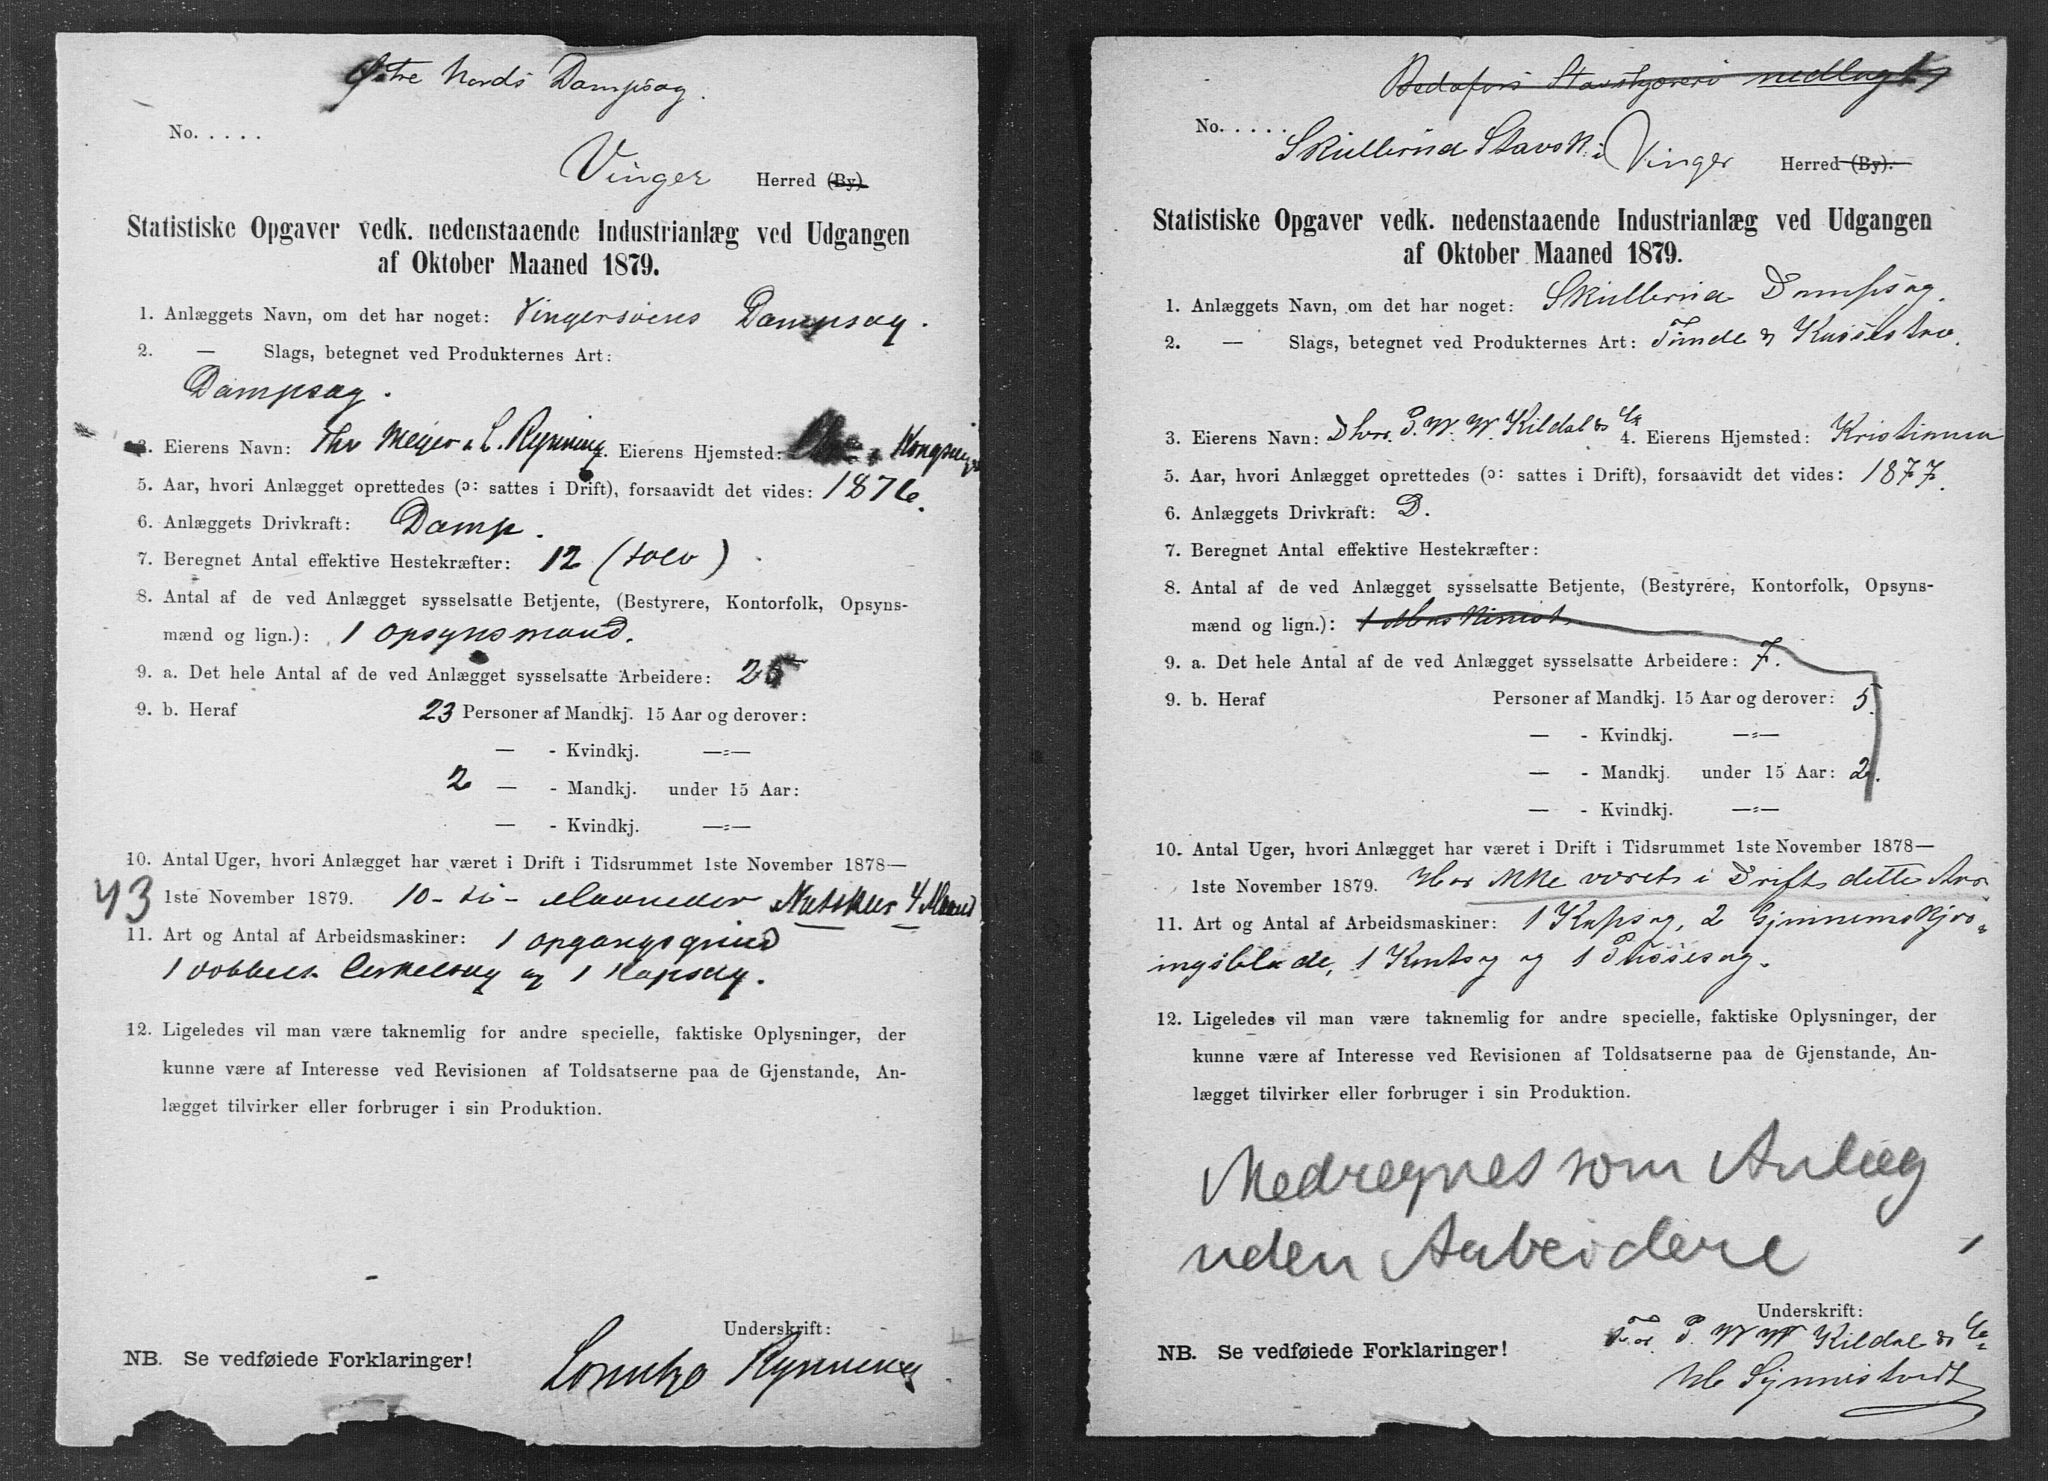 Østre Nords Dampsag.
No. . . . .
Vinger Herred (By)
Statistiske Opgaver vedk. nedenstaaende Industrianlæg ved Udgangen
af Oktober Maaned 1879.
1. Anlæggets Navn, om det har noget: Vingersøens Dampsag.
2. — Slags, betegnet ved Produkternes Art:
Dampsag.
3. Eierens Navn: Thv Meyer & L. Rynning. Eierens Hjemsted: Kongsvinger
5. Aar, hvori Anlægget oprettedes (ɔ: sattes i Drift), forsaavidt det vides: 1876.
6. Anlæggets Drivkraft: Damp.
7. Beregnet Antal effektive Hestekræfter: 12 (tolv)
8. Antal af de ved Anlægget sysselsatte Betjente, (Bestyrere, Kontorfolk, Opsyns-
mænd og lign.): 1 opsynsmand.
9. a. Det hele Antal af de ved Anlægget sysselsatte Arbeidere: 25
9. b. Heraf 23 Personer af Mandkj. 15 Aar og derover:
— - Kvindkj. —=—
2 — - Mandkj. under 15 Aar:
— - Kvindkj. —=—
10. Antal Uger, hvori Anlægget har været i Drift i Tidsrummet 1ste November 1878—
43 1ste November 1879. 10 - ti - Maaneder 4 Maaned
11. Art og Antal af Arbeidsmaskiner: 1 opgangsgrind
1 dobbelt Cirkelsag og 1 Kapsag.
12. Ligeledes vil man være taknemlig for andre specielle, faktiske Oplysninger, der
kunne være af Interesse ved Revisionen af Toldsatserne paa de Gjenstande, An-
lægget tilvirker eller forbruger i sin Produktion.
Underskrift:
NB. Se vedføiede Forklaringer!
Lorentzo Rynning
Stavskjæreri nedlagt
No. . . . .
Skullerud Stavsk. i Vinger Herred (By).
Statistiske Opgaver vedk. nedenstaaende Industrianlæg ved Udgangen
af Oktober Maaned 1879.
1. Anlæggets Navn, om det har noget: Skullerud Dampsag.
2. — Slags, betegnet ved Produkternes Art: Tønde & Kassestav.
3. Eierens Navn: Dhrr. P. W. W. Kildal & Co 4. Eierens Hjemsted: Kristiania
5. Aar, hvori Anlægget oprettedes (ɔ: sattes i Drift), forsaavidt det vides: 1877.
6. Anlæggets Drivkraft: D.
7. Beregnet Antal effektive Hestekræfter:
8. Antal af de ved Anlægget sysselsatte Betjente, (Bestyrere, Kontorfolk, Opsyns-
mænd og lign.): 1 Maskinist
9. a. Det hele Antal af de ved Anlægget sysselsatte Arbeidere: 7.
9. b. Heraf Personer af Mandkj. 15 Aar og derover: 5
— - Kvindkj. —=—
— - Mandkj. under 15 Aar: 2.
— - Kvindkj. —=—
10. Antal Uger, hvori Anlægget har været i Drift i Tidsrummet 1ste November 1878—
1ste November 1879. Har ikke været i Drift dette Aar
11. Art og Antal af Arbeidsmaskiner: 1 Kapsag, 2 Gjennemskjær-
ingsblade, 1 Kantsag og 1 Pudsesag.
12. Ligeledes vil man være taknemlig for andre specielle, faktiske Oplysninger, der
kunne være af Interesse ved Revisionen af Toldsatserne paa de Gjenstande, An-
lægget tilvirker eller forbruger i sin Produktion.
Medregnes som Anlæg
uden Arbeidere
1
Underskrift:
For P. W. W. Kildal & Co
NB. Se vedføiede Forklaringer!